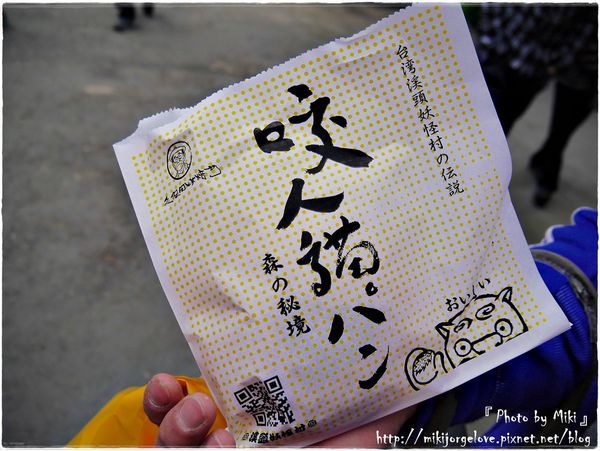 台湾溪頭妖怪村の伝説
咬人貓パン
森の秘境
おいしい
『 Photo by Miki 』
http://mikijorgelove.pixnet.net/blog